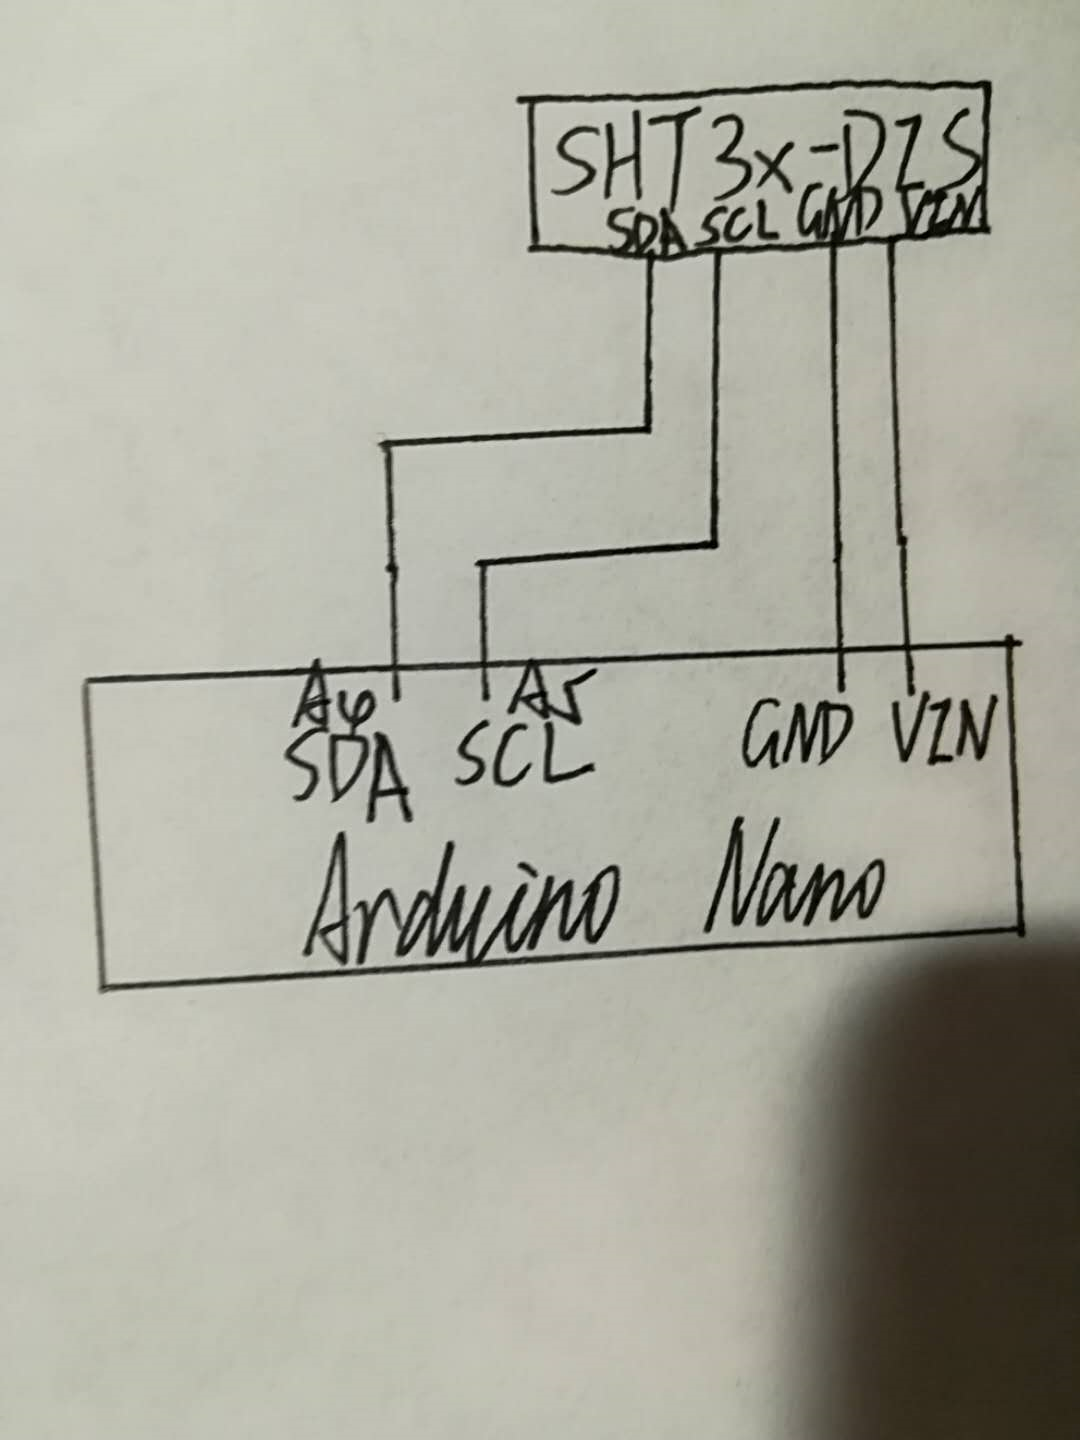 SHT3x-DIS
SDA SCL GND VIN
A4 A5
SDA SCL GND VIN
Arduino Nano